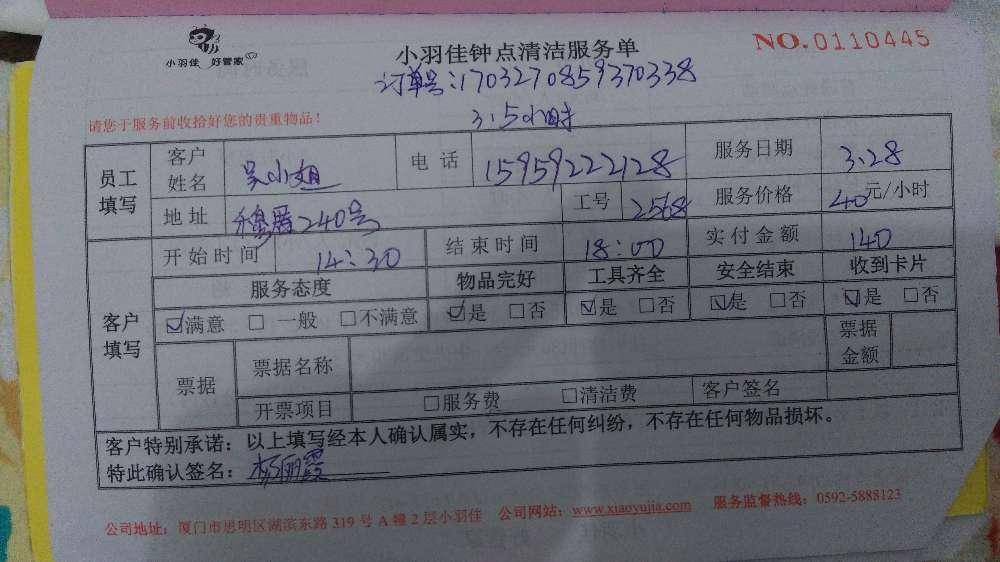 小羽佳 好管家
小羽佳钟点清洁服务单
NO.0110445
订单号:1703270859370338
3.5小时
请您于服务前收拾好您的贵重物品!
员工填写 客户姓名 吴小姐 电话 15959222128 服务日期 3.28
地址 240号 工号 2568 服务价格 40元/小时
客户填写 开始时间 14:30 结束时间 18:00 实付金额 140
服务态度 物品完好 工具齐全 安全结束 收到卡片
☑满意 □一般 □不满意 ☑是 □否 ☑是 □否 ☑是 □否 ☑是 □否
票据 票据名称 票据金额
开票项目 □服务费 □清洁费 客户签名
客户特别承诺:以上填写经本人确认属实,不存在任何纠纷,不存在任何物品损坏。
特此确认签名:杨丽霞
公司地址:厦门市思明区湖滨东路 319 号 A 幢 2 层小羽佳 公司网站:www.xiaoyujia.com 服务监督热线:0592-5888123